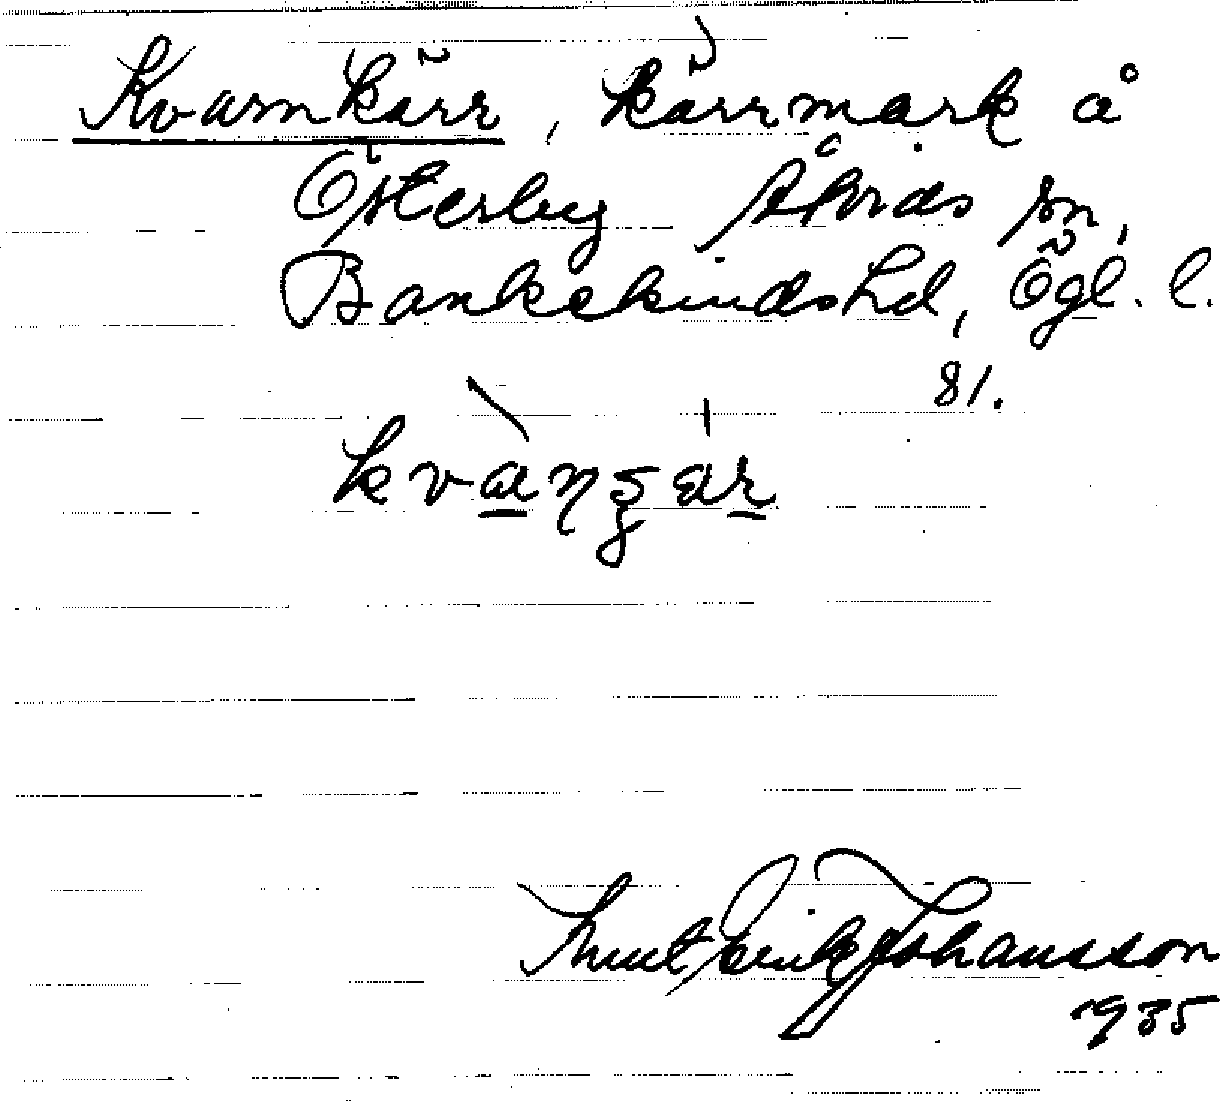 Kvarnkärr, kärrmark å
Österby Åtvids sn,
Bankekinds hd, Ögl. l.
81.
Knut Erik Johansson
1935